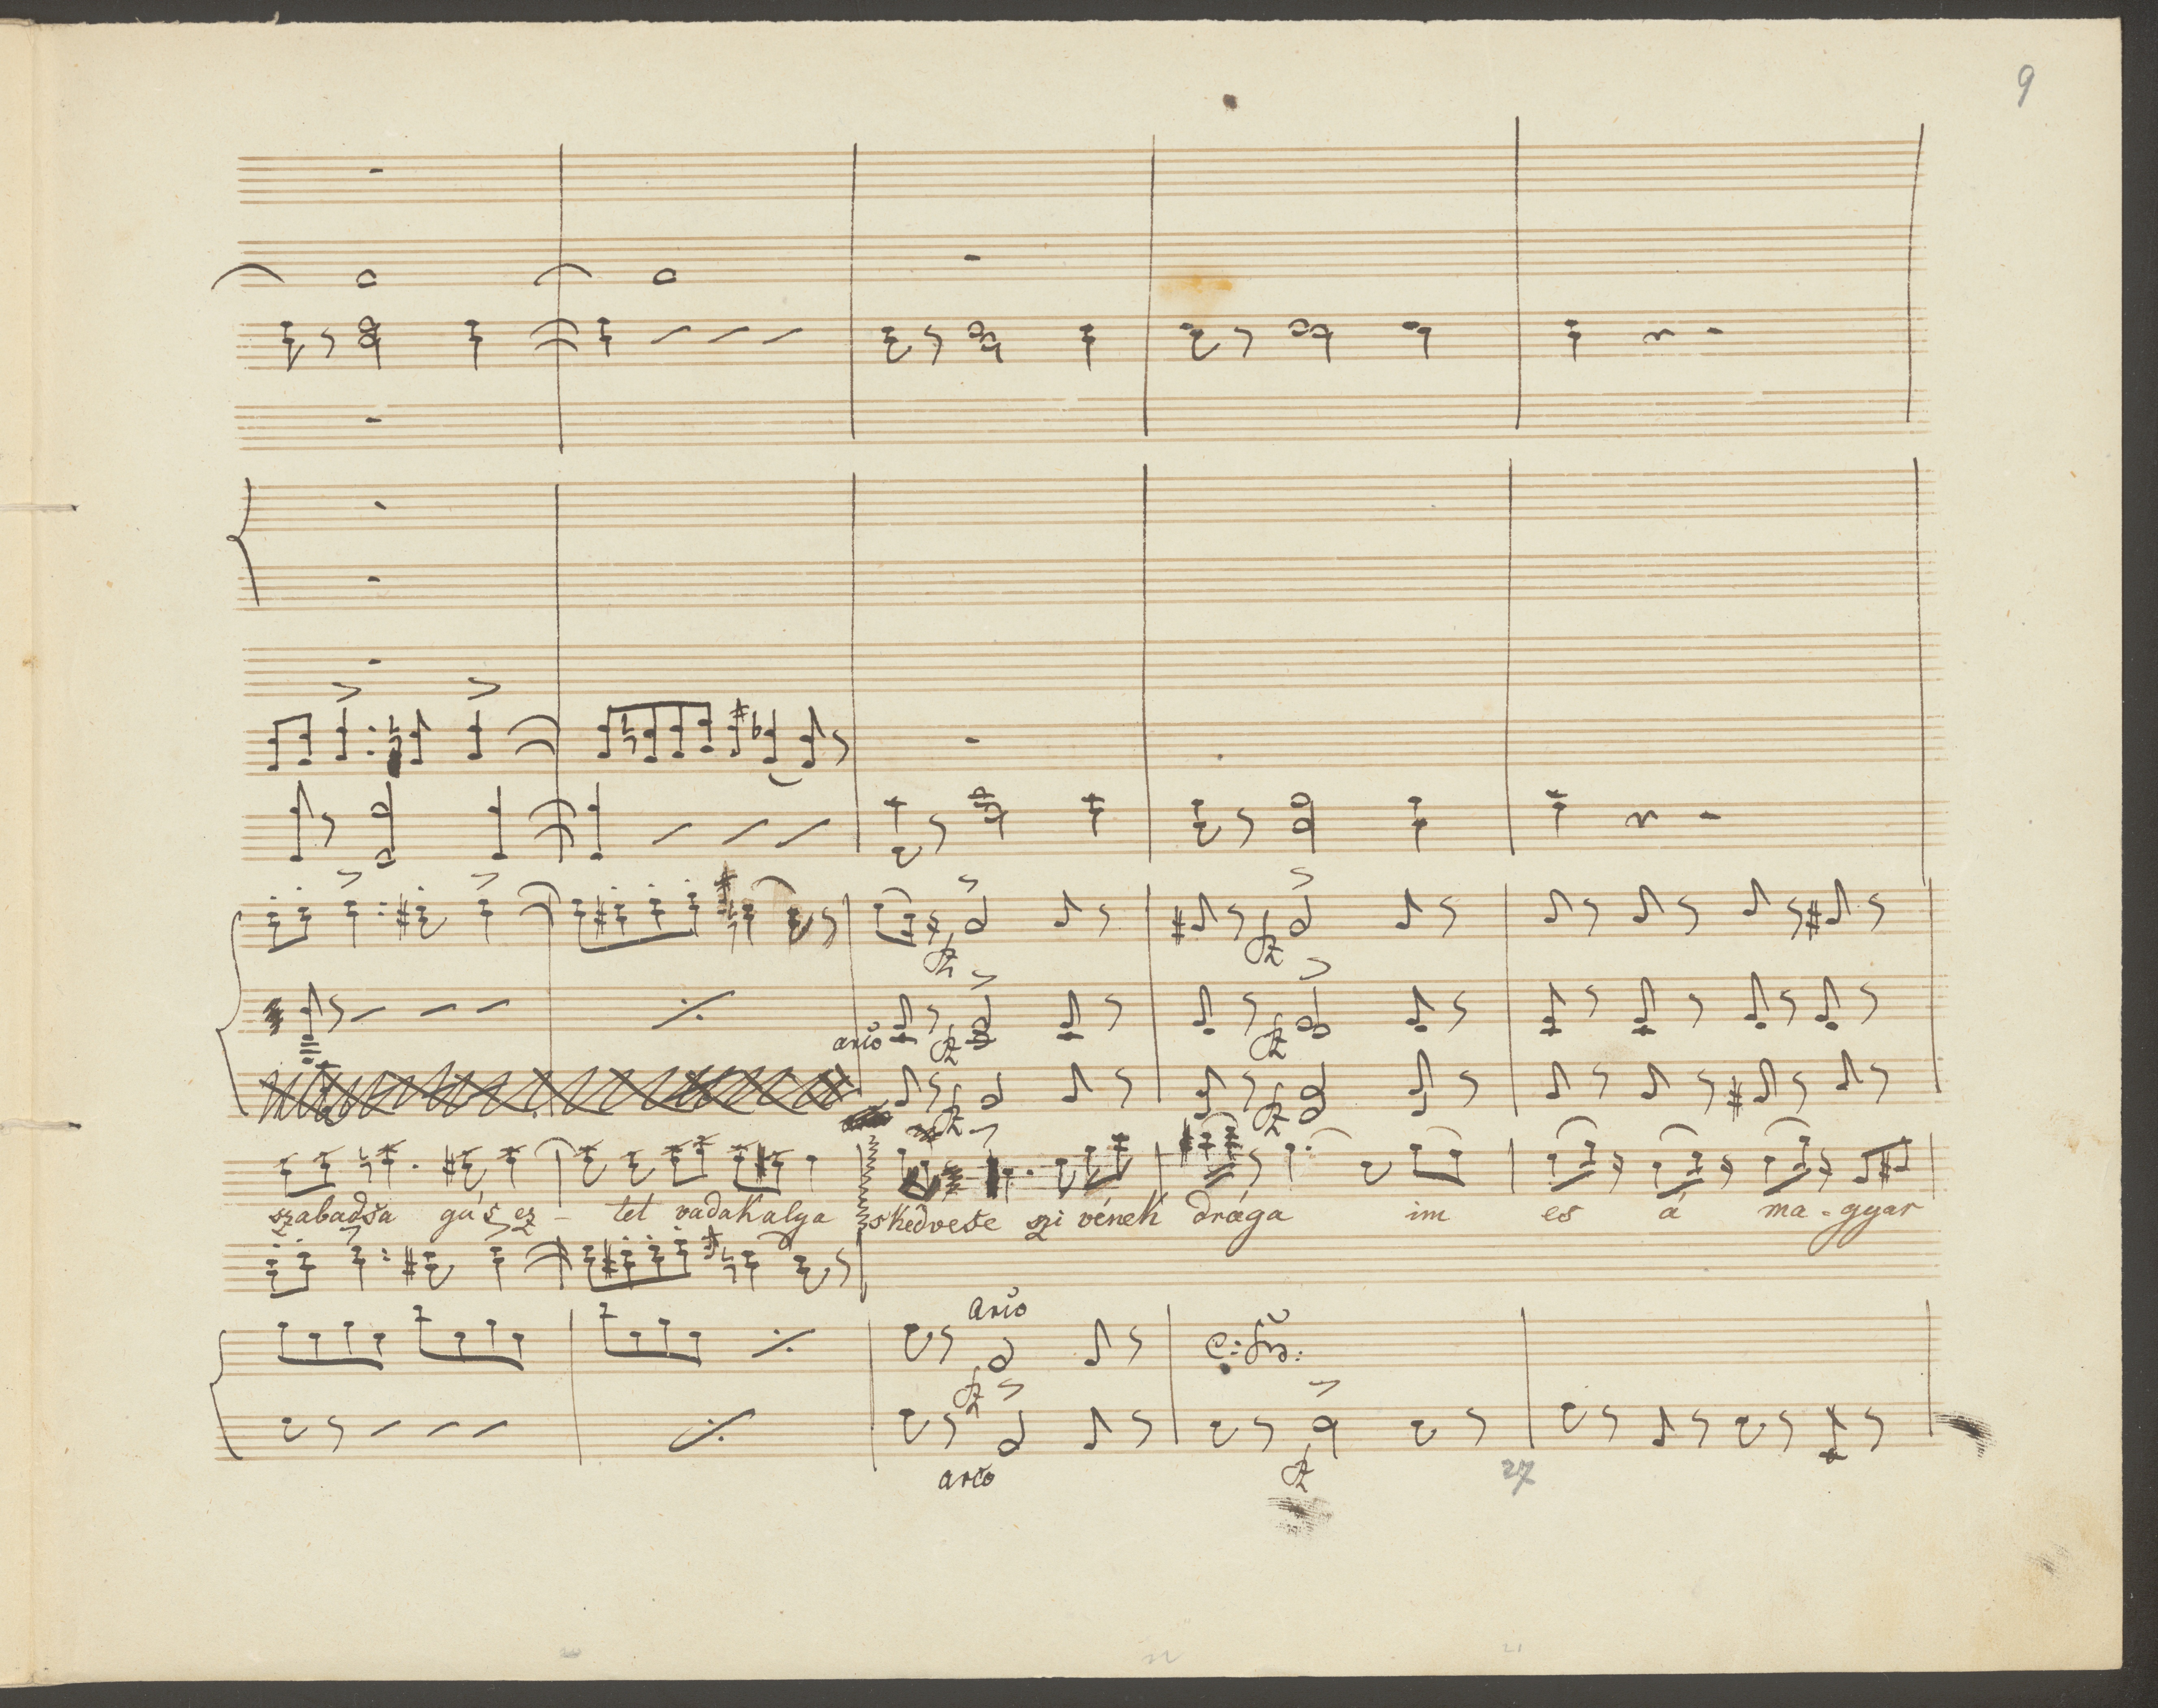 9
arco
szabadša gáš ez - tet vadakalya skedveše szi vének drága im es á ma - gyar
arco
arco
27